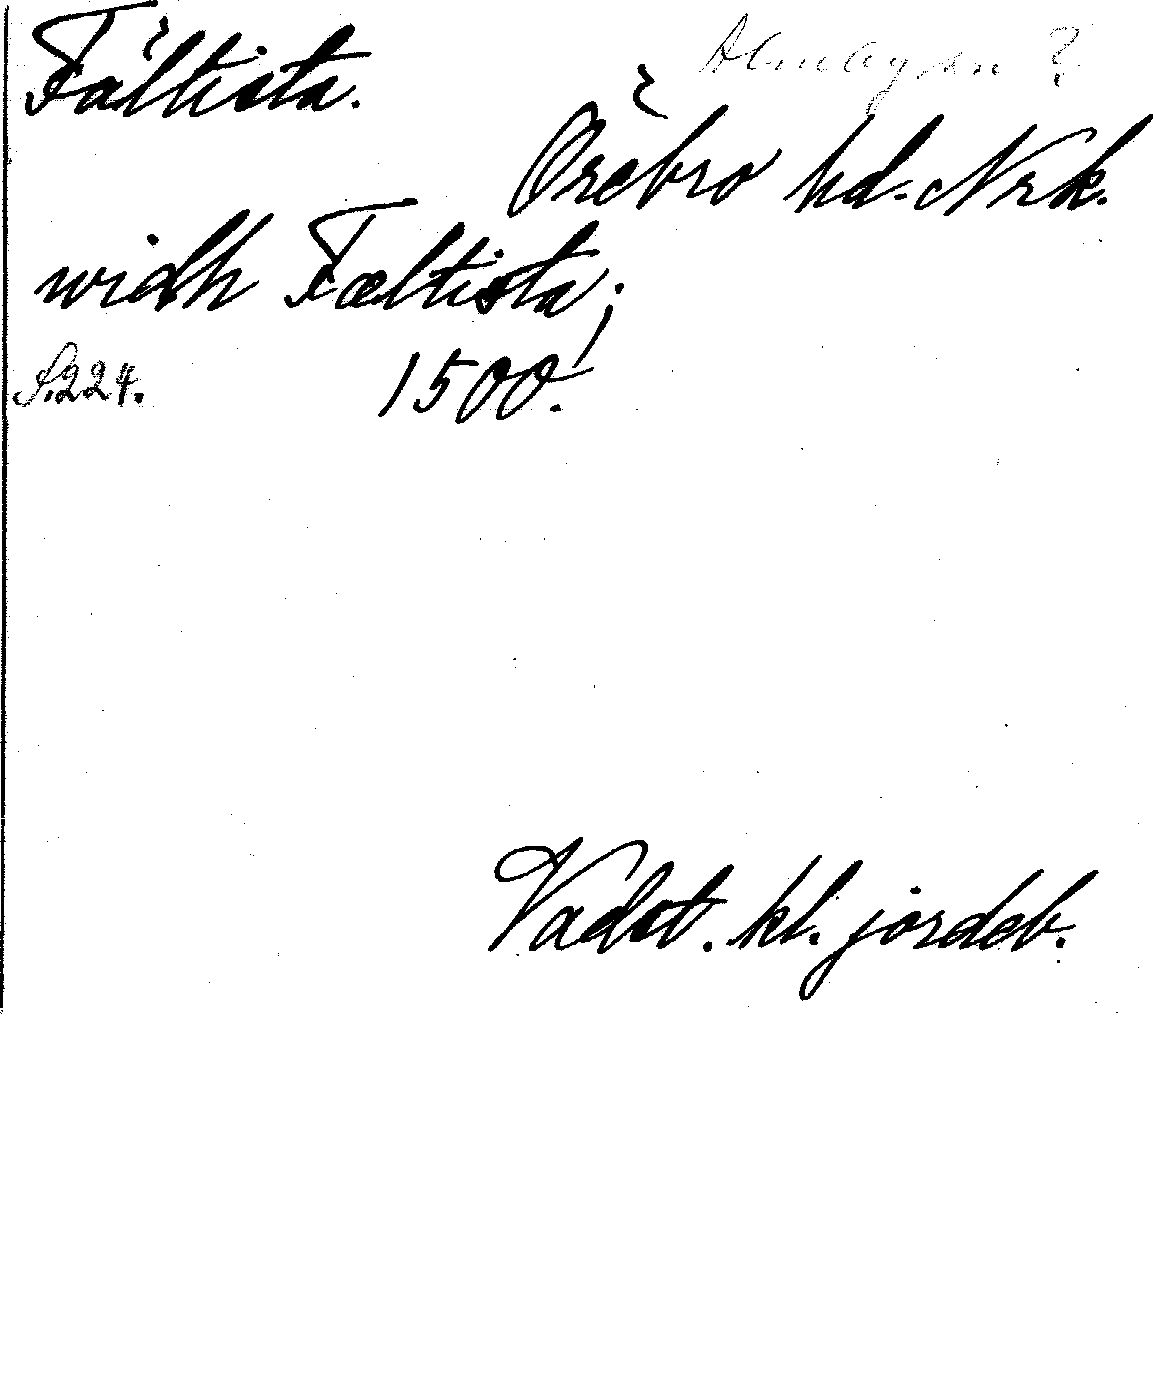 Fältista.
Almbyssn ?
Örebro hd. Nrk.
widh Fæltista;
S. 224. 1500.
Vadst. kl. jordeb.